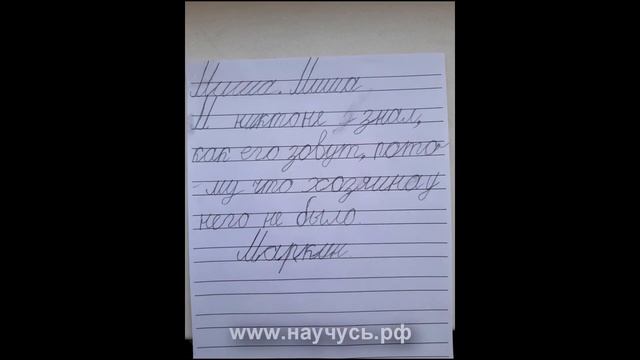 Миша. Миша
И никто не знал,
как его зовут, пото
-му что хозяина у
него не было.
Маркин
www.научусь.рф